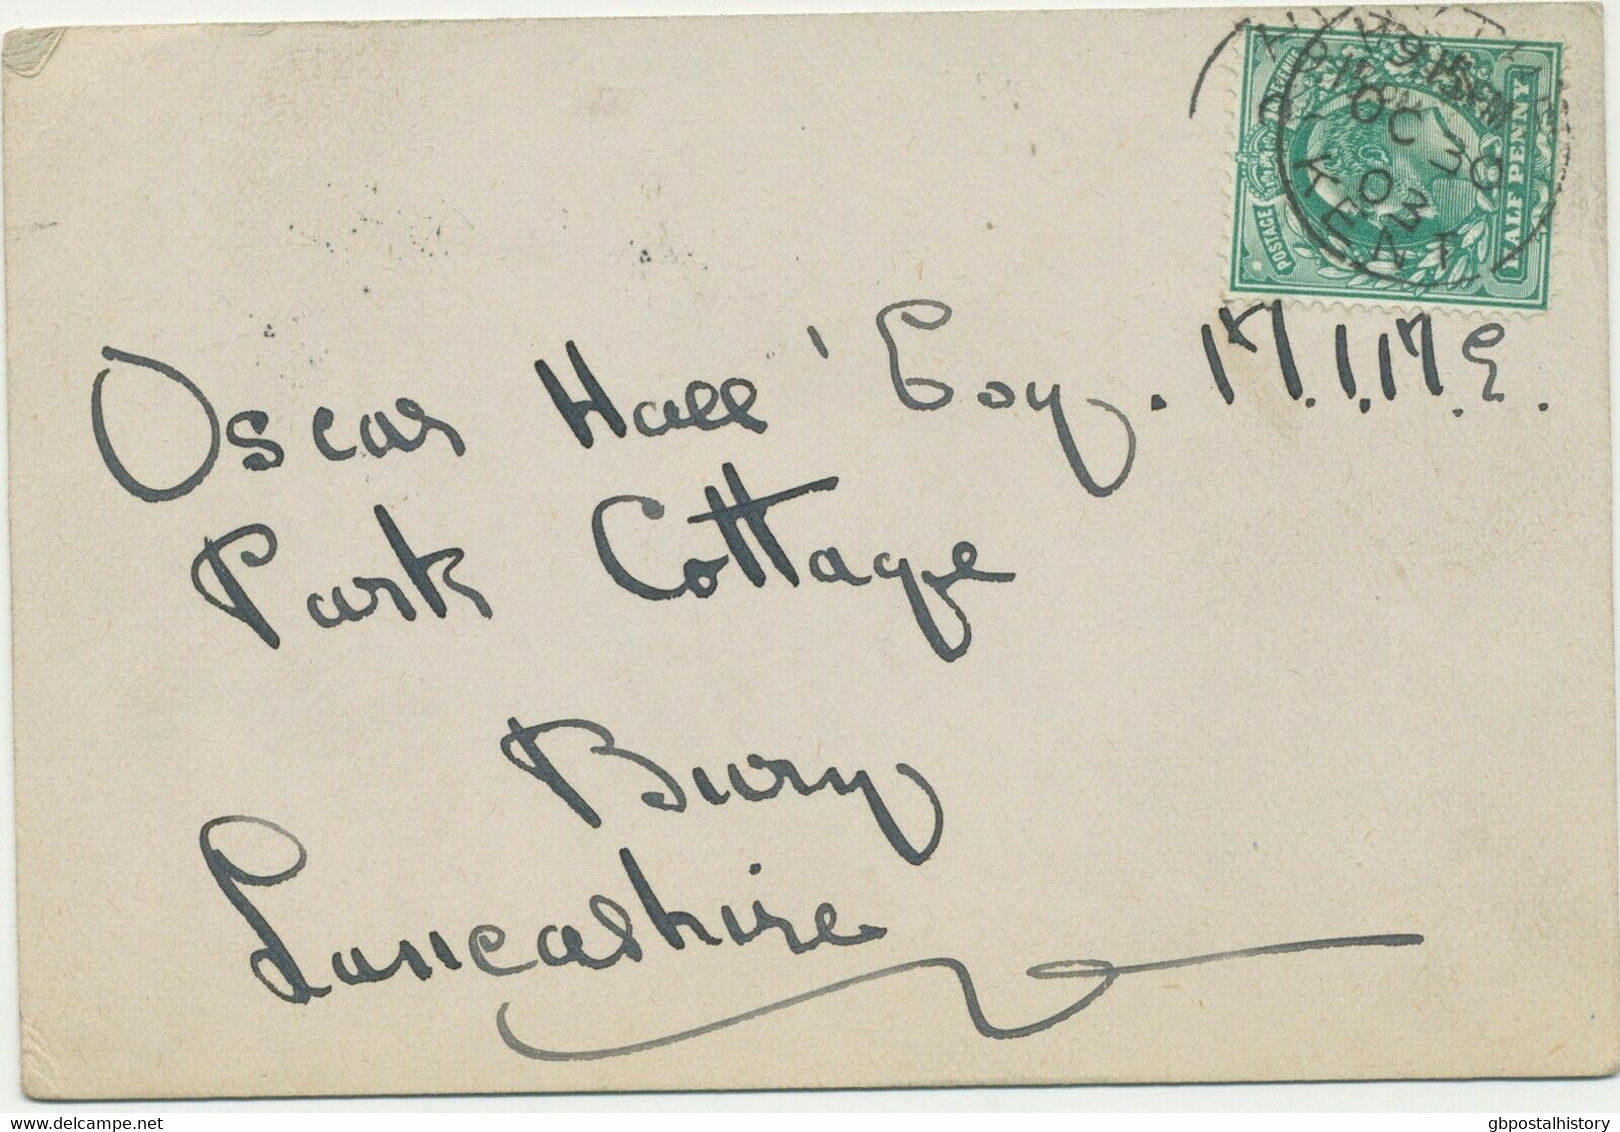 POSTAGE
HALF PENNY
9 15 PM
OC 30
03
KENT
Oscar Hall Esq. M.I.M.E.
Park Cottage
Bury
Lancashire
delcampe.net
gbpostalhistory